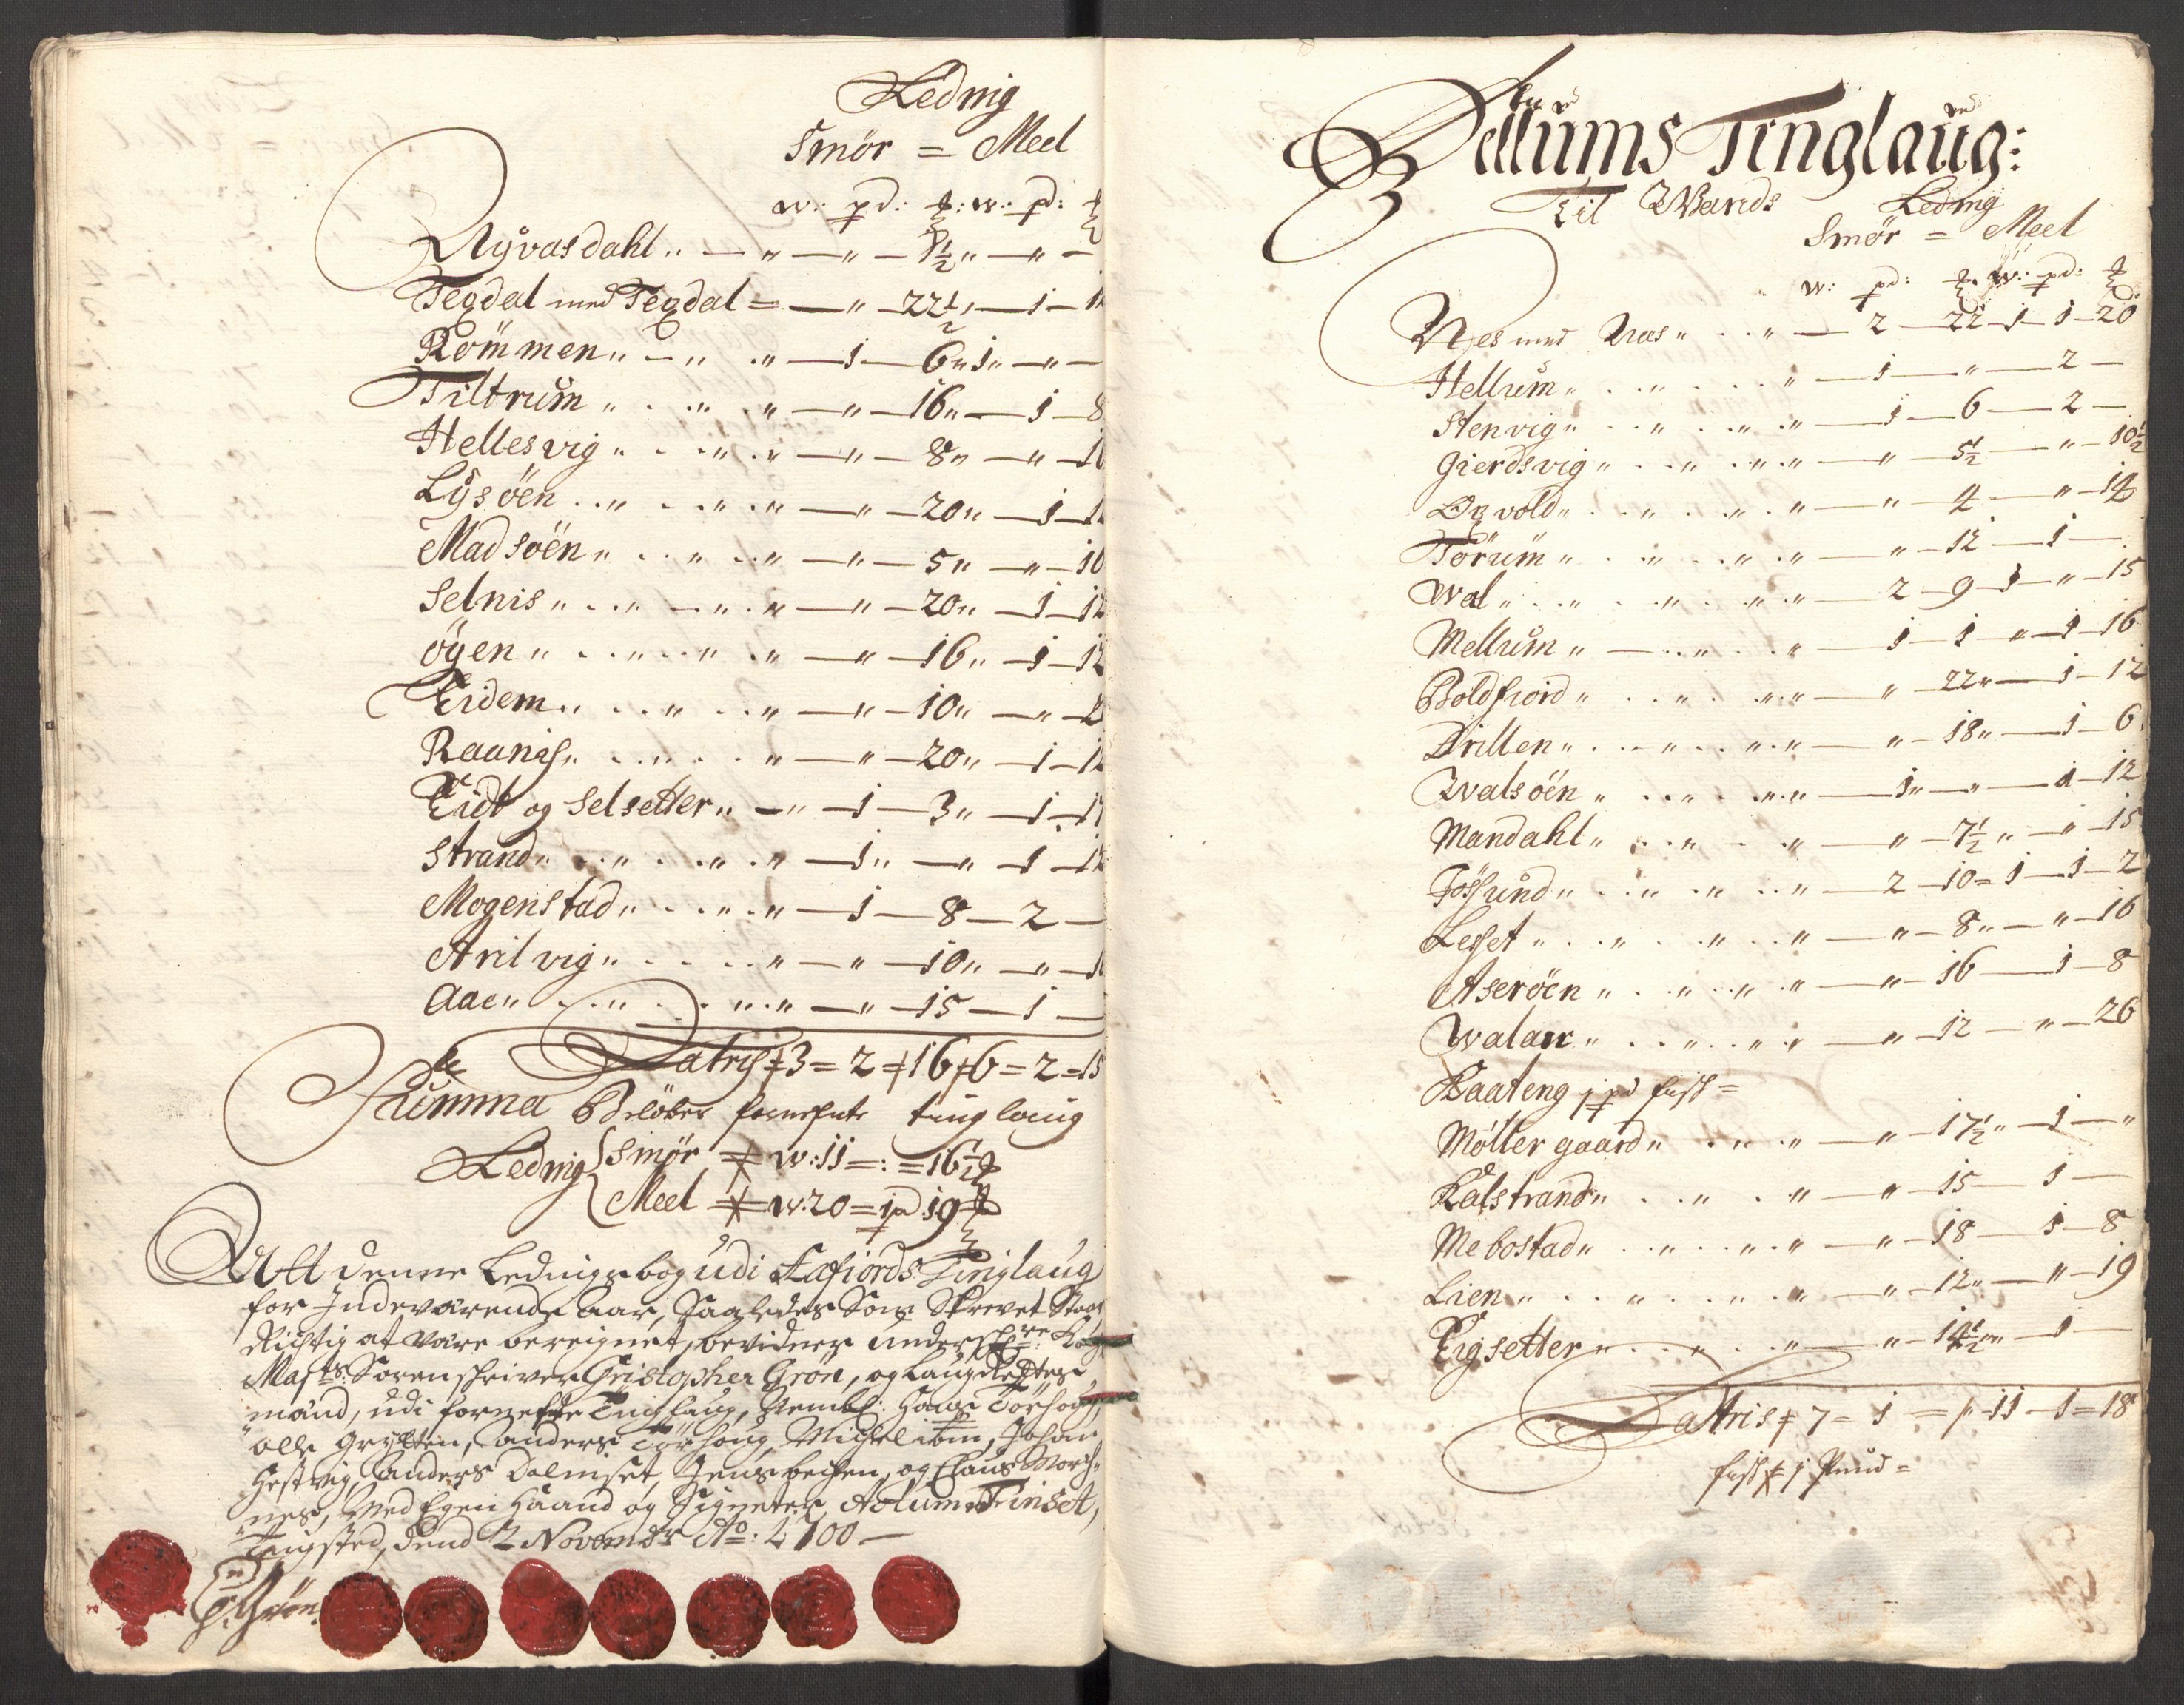 Lednig
Smör = Meel
w: pd: ℔: w: pd: ℔
Nÿvasdahl „ — „ — „ — 7½ „ — „ —
Tegdal med Tegdal = — „ — 22½ „ — 1 — 1
Römmen „ — „ „ — 1 — 6 „ 1 „ — „ —
Tiltrum „ . „ „ — „ — 16 „ — 1 — 8
Hellesvig „ . „ „ — „ — 8 „ — „ — 1
Lÿsöen „ . „ „ — „ — 20 „ — 1 — 1
Madsöen „ . „ „ — „ — 5 „ — „ — 10
Selnis „ . „ — „ „ — „ — 20 „ — 1 — 12
öÿen „ . „ „ „ — „ — 16 „ — 1 — 12
Eidem „ . „ „ — „ — 10 „ — „ — 2
Raanis „ . „ „ — „ — 20 „ — 1 — 12
Eidt og Selsetter „ — „ — 1 — 3 „ — 1 — 17
Strand „ . „ „ „ — 1 „ — „ — 1 — 12
Mogenstad „ . „ „ — 1 — 8 — 2 —
Arilvig „ . „ — „ — 10 „ — „ — 1
Aae „ . „ „ „ — „ — 15 — 1 —
Latris ≠ 3 = 2 ≠ 16 ≠ 6 = 2 = 15
Summa Beløber forneffnte tinglaug
Lednig Smör ≠ w: 11 =: = 16½ ℔
Meel ≠ w. 20 = 1 pd 19 ℔
Att denne Lednigsbog udi Stafiords Tinglaug
for Indeværende Aar, Saaledes Som Skrevet Staar
Rigtig at være beregnet, bevidner underschr: Kong
Maÿts Sorenschriver Christopher Grön, og Laugrettes
mænd, udi fornefnte Tinglaug, Nembl: Hans Törhoug
olle Grÿtten, Anders Törhoug, Michel ibm, Johan
Hestvig, Anders Dalmset, Jens beschen, og Claus Morch-
nes, Med Egen Haand og Signeter, Aolum Trinset,
Tingsted, dend 2 Novembr Ao: 1700 —
C. Grön
Bellums Tinglaug:
Til Wards Lednig
Smör = Meel
w: pd: ℔: w: pd: ℔
Nes med Noes „ . „ — 2 — 22 — 1 — 1 — 20
Hellum „ . „ . „ — 1 — „ — 2 —
Stenvig „ . „ „ „ — 1 — 6 — 2 —
Gierdsvig „ . „ „ „ — „ — 5½ — „ — 10½
Opvold „ . „ . „ „ — „ — 4 — „ — 14
Törum „ . „ „ „ — „ — 12 — 1 —
Wal „ . „ . „ „ „ — 2 — 9 — 1 — „ — 15
Mellum „ — . „ „ — 1 — 1 — „ — 1 — 16
Boldfiord „ . „ . „ „ — „ — 22 „ — 1 — 12
Drillen „ . „ . „ „ — „ — 18 „ — 1 — 6
Hvalsöen „ . „ . „ „ — 1 „ — „ — 1 — 12
Mandahl „ . „ . „ — „ — 7½ „ — „ — 15
Fössund „ . „ „ „ — 2 — 10 = 1 — 1 — 2
Lesset „ . „ . „ „ — „ — 8 „ — „ — 16
Aseröen „ . „ „ „ — „ — 16 — 1 — 8
Walaer „ . „ „ „ — „ — 12 — „ — 26
Baateng 1 pd fisk =
Møller gaard „ . „ „ — „ — 17½ „ — 1 — „
Kalstrand „ . „ . „ — „ — 15 — 1 —
Mebostad „ . „ „ „ — „ — 18 — 1 — 8
Lien „ . „ „ „ — „ — 12 „ — „ — 19
Eigsetter „ . „ . „ — „ — 14½ „ — 1 —
Latris ≠ 7 = 1 = „ 11 — 1 = 18
fisk ≠ 1 Pund =